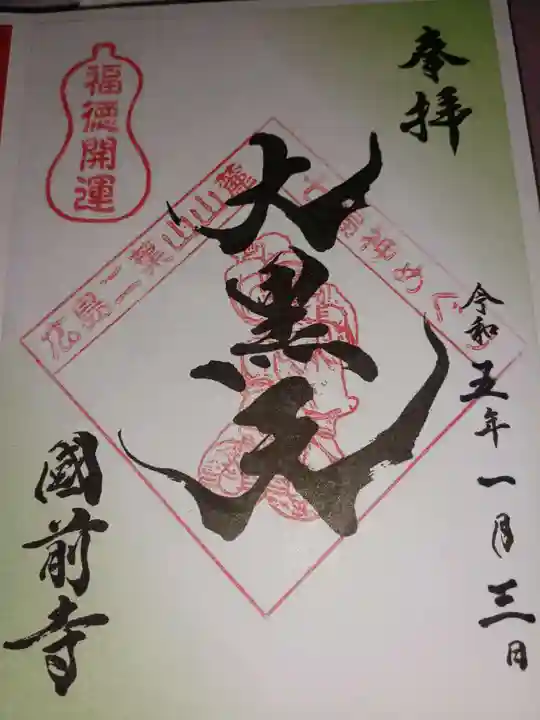 奉拝
令和五年一月三日
大黒天
福徳開運
広島二葉山山麓
七福神めぐり
國前寺